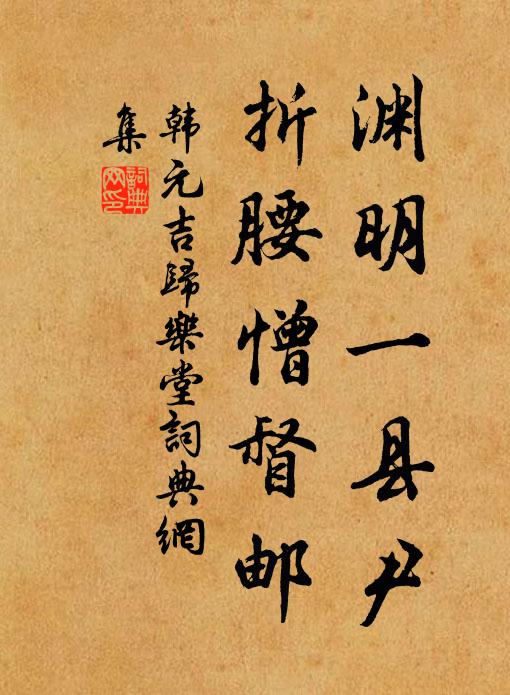 渊明一县尹
折腰憎督邮
韩元吉歸樂堂詞典網
集
詞典網印